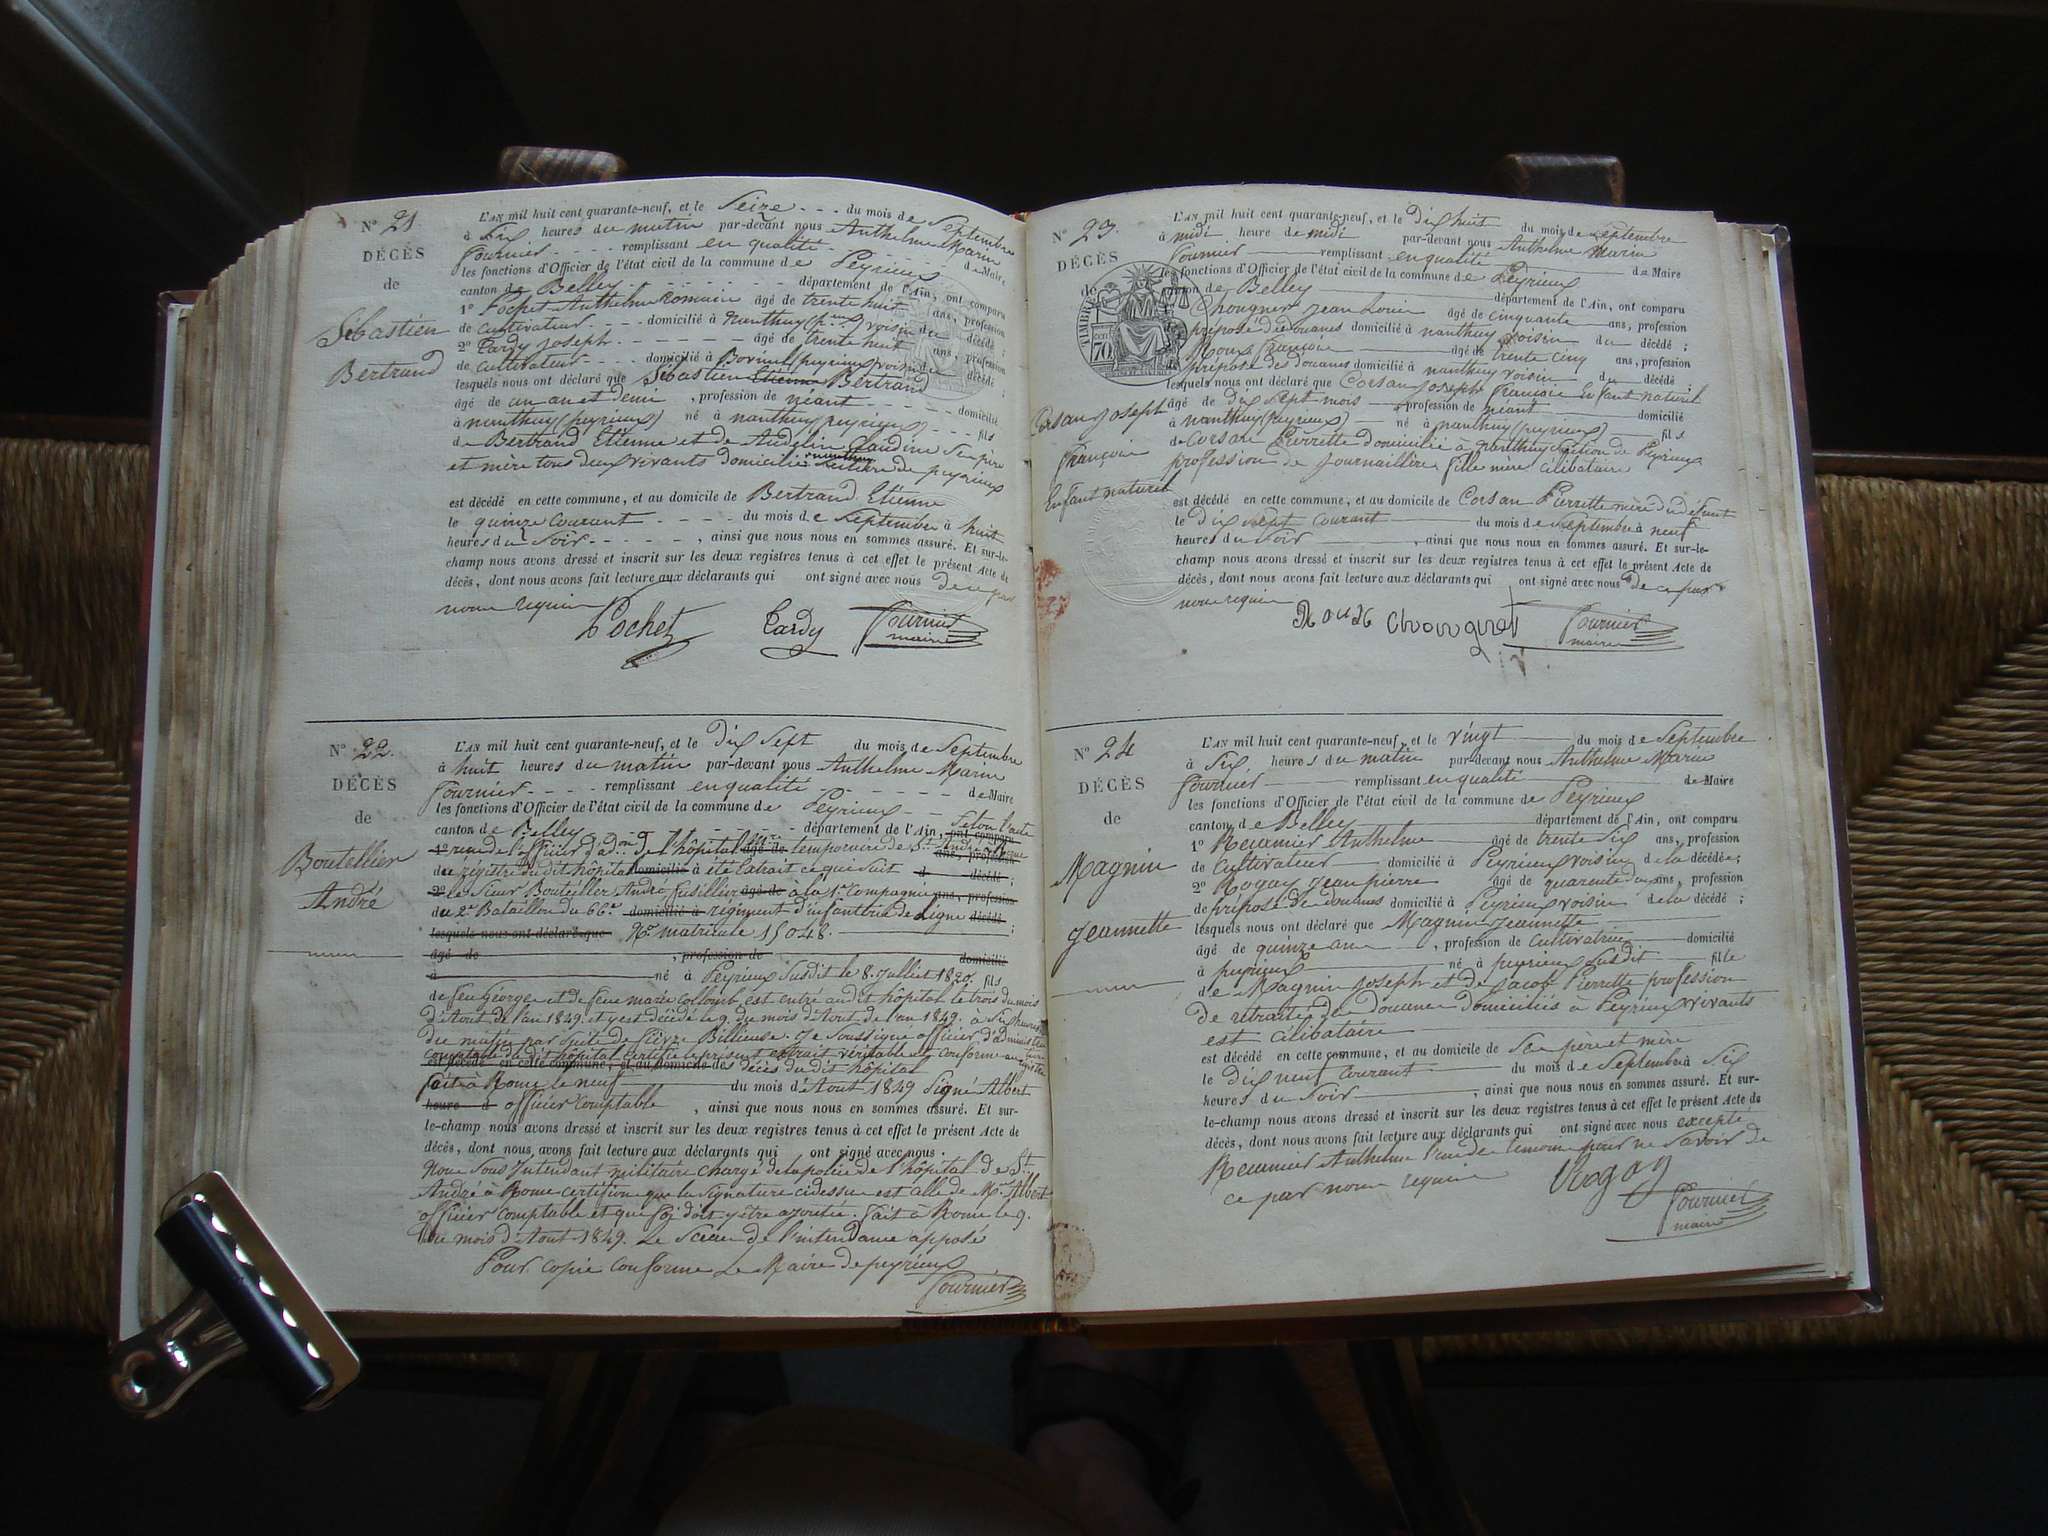 N° 21
DÉCÈS
de
Sébastien
Bertrand
L'AN mil huit cent quarante-neuf, et le Seize du mois de Septembre
à Six heures du matin par-devant nous Anthelme Marin
Fournier remplissant en qualité de Maire
les fonctions d'Officier de l'état civil de la commune de Peyrieux
canton de Belley département de l'Ain, ont comparu
1° Pochet Anthelme Romain âgé de trente huit ans, profession
de cultivateur domicilié à nanthuy voisin du décédé ;
2° Tardy joseph âgé de trente huit ans, profession
de cultivateur domicilié à (peyrieux) voisin du décédé ;
lesquels nous ont déclaré que Sébastien Etienne Bertrand
âgé de un an et demi , profession de néant domicilié
à nanthuy (peyrieux) né à nanthuy (peyrieux) fils
de Bertrand Etienne et de Claudine Ses père
et mère tous deux vivants domiciliés de peyrieux
est décédé en cette commune, et au domicile de Bertrand Etienne
le quinze courant du mois de Septembre à huit
heures du Soir , ainsi que nous nous en sommes assuré. Et sur-le-
champ nous avons dressé et inscrit sur les deux registres tenus à cet effet le présent Acte de
décès, dont nous avons fait lecture aux déclarants qui ont signé avec nous de ce par
nous requis
Pochet Tardy Fournier
maire
N° 22.
DÉCÈS
de
Boutellier
André
L'AN mil huit cent quarante-neuf, et le dix Sept du mois de Septembre
à huit heures du matin par-devant nous Anthelme Marin
Fournier remplissant en qualité de Maire
les fonctions d'Officier de l'état civil de la commune de Peyrieux
canton de Belley département de l'Ain, Selon l'acte ont comparu
1° de l'officier d'adon de l'hôpital âgé de temporaire de St André à Rome ans, profession
du régistre du dit hôpital domicilié à été Extrait ce que suit décédé ;
2° le Sieur Bouteiller André fusillier âgé de à la Compagnie ans, profession
du 2e Bataillon du 66e domicilié à régiment d'infantrie de Ligne décédé
lesquels nous ont déclaré que No matricule 15048.
âgé de , profession de domicilié
à né à Peyrieux Susdit le 8. Juillet 1820. fils
de feu George et de feue marie Collomb, est entré audit hôpital le trois du mois
d'Aout de l'an 1849. et y est décédé le 9 du mois d'Aout de l'an 1849. à Six heures
du matin par Suite de fièvre Billieuse. Je Soussigné officier d'administration
comptable du dit hôpital certifie le présent extrait véritable et conforme au régistre
est décédé en cette commune, et au domicile des décès du dit hôpital
fait à Rome le neuf du mois d'Aout 1849 Signé Albert
heure à officier comptable , ainsi que nous nous en sommes assuré. Et sur-
le-champ nous avons dressé et inscrit sur les deux registres tenus à cet effet le présent Acte de
décès, dont nous avons fait lecture aux déclarants qui ont signé avec nous.
Nous Sous Intendant militaire chargé de la police de l'hôpital de St
André à Rome certifions que la signature cidessus est celle de Mr Albert
officier comptable et que foi doit y être ajoutée. fait à Rome le 9.
du mois d'Aout 1849. Le Sceau de l'intendance apposé
Pour copie conforme Le Maire de peyrieux
Fournier
N° 23.
DÉCÈS
de
TIMBRE
70
Corsan joseph
françois
Enfant naturel
L'AN mil huit cent quarante-neuf, et le dix huit du mois de septembre
à midi heure de midi par-devant nous Anthelme Marin
Fournier remplissant en qualité de Maire
les fonctions d'Officier de l'état civil de la commune de Peyrieux
canton de Belley département de l'Ain, ont comparu
Jean Louis âgé de cinquante ans, profession
de préposé des douanes domicilié à nanthuy voisin du décédé ;
Roux françois âgé de trente cinq ans, profession
de préposé des douanes domicilié à nanthuy voisin du décédé ;
lesquels nous ont déclaré que Corsan Joseph françois Enfant naturel
âgé de dix sept mois profession de néant domicilié
à nanthuy (peyrieux) né à nanthuy (peyrieux) fils
de Corsan Pierrette domicilié à nanthuy Section de Peyrieux
profession de journaillière fille mère célibataire
est décédé en cette commune, et au domicile de Corsan Pierrette mère du défunt
le dix sept courant du mois de Septembre à neuf
heures du Soir , ainsi que nous nous en sommes assuré. Et sur-le-
champ nous avons dressé et inscrit sur les deux registres tenus à cet effet le présent Acte de
décès, dont nous avons fait lecture aux déclarants qui ont signé avec nous de ce par
nous requis
Roux Fournier
maire
N° 24
DÉCÈS
de
Magnin
Jeannette
L'AN mil huit cent quarante-neuf, et le vingt du mois de Septembre
à Six heures du matin par-devant nous Anthelme Marin
Fournier remplissant en qualité de Maire
les fonctions d'Officier de l'état civil de la commune de Peyrieux
canton de Belley département de l'Ain, ont comparu
1° Reumier Anthelme âgé de trente Six ans, profession
de Cultivateur domicilié à Peyrieux voisin de la décédée ;
2° Rogay Jean pierre âgé de quarente deux ans, profession
de préposé des douanes domicilié à Peyrieux voisin de la décédé ;
lesquels nous ont déclaré que Magnin Jeannette
âgé de quinze ans , profession de Cultivatrice domicilié
à peyrieux né à peyrieux Susdit fille
de Magnin Joseph et de Jacob Pierrette profession
de retraité de la Douane Domiciliés à Peyrieux vivants
est célibataire
est décédé en cette commune, et au domicile de Ses père et mère
le dix neuf Courant du mois de Septembre à Six
heures du Soir , ainsi que nous nous en sommes assuré. Et sur-
le-champ nous avons dressé et inscrit sur les deux registres tenus à cet effet le présent Acte de
décès, dont nous avons fait lecture aux déclarants qui ont signé avec nous excepté
Reumier Anthelme l'un des temoins pour ne Savoir de
ce par nous requis Rogay
Fournier
maire